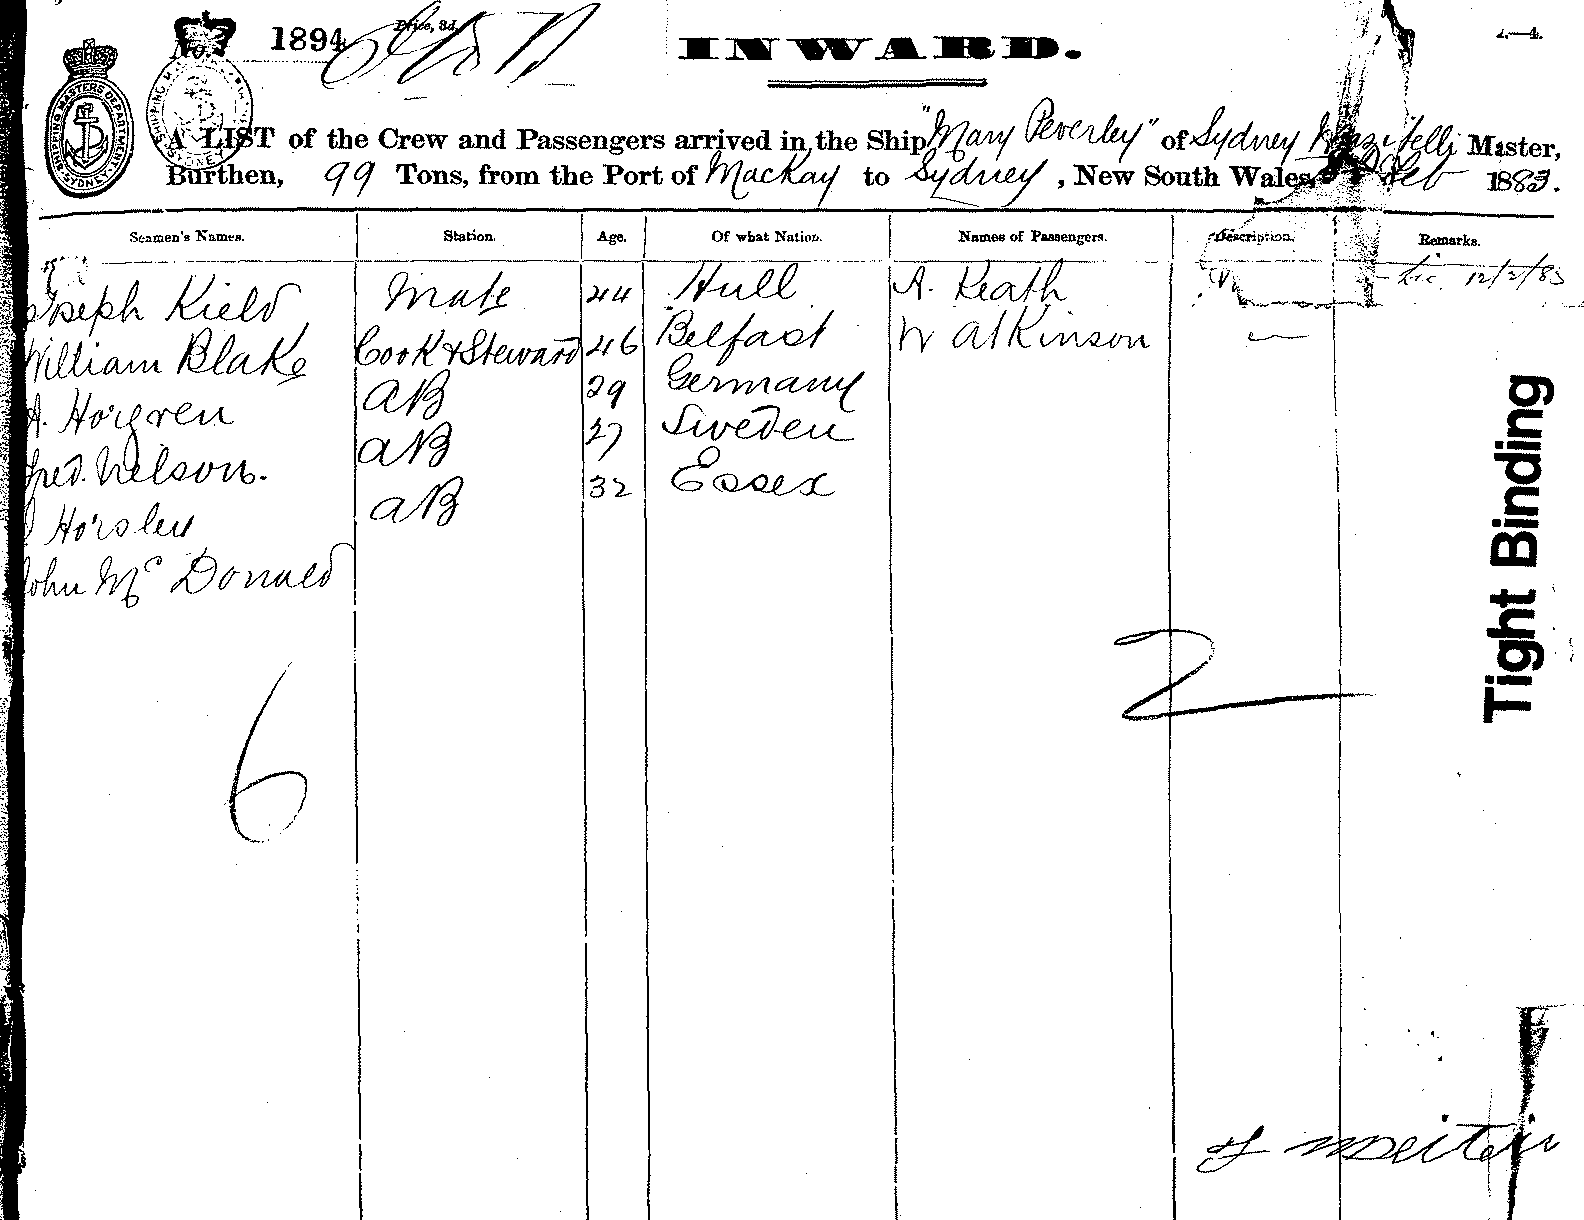 No. 1894 Price, 3d.
INWARD.
SHIPPING MASTERS DEPARTMENT SYDNEY
A LIST of the Crew and Passengers arrived in the Ship "Mary Peverley" of Sydney Master,
Burthen, 99 Tons, from the Port of Mackay to Sydney, New South Wales, Feb 1883.
Seamen's Names. Station. Age. Of what Nation. Names of Passengers. Description. Remarks.
Joseph Kield Mate 44 Hull A. Keath 12/2/83
William Blake Cook & Steward 46 Belfast W Atkinson
A. Horgren AB 29 Germany
Fred. Nilson. AB 27 Sweden
Horsley AB 32 Essex
John Mc Donald
6
2
Tight Binding